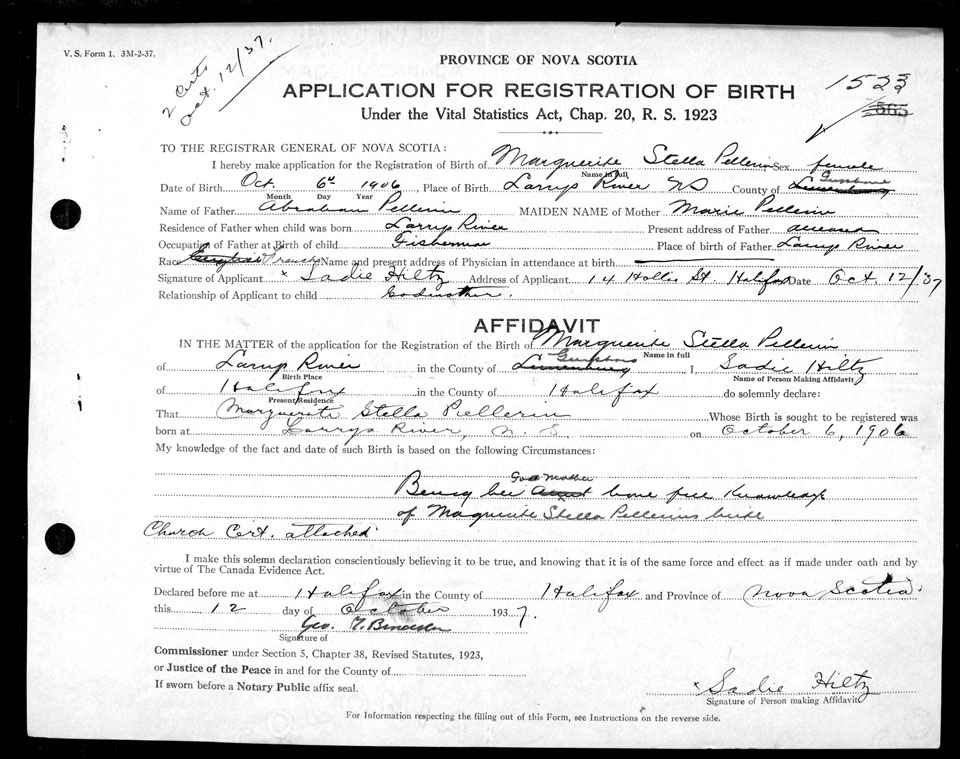 V. S. Form 1. 3M-2-37.
2 Certs
Oct. 12/37.
PROVINCE OF NOVA SCOTIA
APPLICATION FOR REGISTRATION OF BIRTH
Under the Vital Statistics Act, Chap. 20, R. S. 1923
1523
565
TO THE REGISTRAR GENERAL OF NOVA SCOTIA:
I hereby make application for the Registration of Birth of Marguerite Stella Pellerin Sex female
Name in full
Guysboro
Date of Birth Oct. 6th 1906, Place of Birth Larrys River NS County of Lunenburg
Month Day Year
Name of Father Abraham Pellerin MAIDEN NAME of Mother Marie Pellerin
Residence of Father when child was born Larrys River Present address of Father deceased
Occupation of Father at Birth of child Fisherman Place of birth of Father Larrys River
Race English French Name and present address of Physician in attendance at birth
Signature of Applicant x Sadie Hiltz Address of Applicant 14 Hollis St. Halifax Date Oct. 12/37
Relationship of Applicant to child Godmother.
AFFIDAVIT
IN THE MATTER of the application for the Registration of the Birth of Marguerite Stella Pellerin
Name in full
Guysboro
of Larrys River in the County of Lunenburg I Sadie Hiltz
Birth Place Name of Person Making Affidavit
of Halifax in the County of Halifax do solemnly declare:
Present Residence
That Marguerite Stella Pellerin Whose Birth is sought to be registered was
born at Larrys River, N. S. on October 6, 1906
My knowledge of the fact and date of such Birth is based on the following Circumstances:
God Mother
Being her Aunt have full Knowledge
of Maguerite Stella Pellerins birth
Church Cert. attached
I make this solemn declaration conscientiously believing it to be true, and knowing that it is of the same force and effect as if made under oath and by
virtue of The Canada Evidence Act.
Declared before me at Halifax in the County of Halifax and Province of Nova Scotia
this 12 day of October 1937.
Geo.
Signature of
Commissioner under Section 5, Chapter 38, Revised Statutes, 1923,
or Justice of the Peace in and for the County of
If sworn before a Notary Public affix seal.
x Sadie Hiltz
Signature of Person making Affidavit
For Information respecting the filling out of this Form, see Instructions on the reverse side.